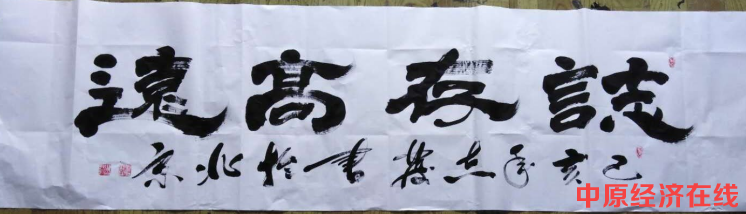 誌存高遠
己亥志書於北京
中原经济在线